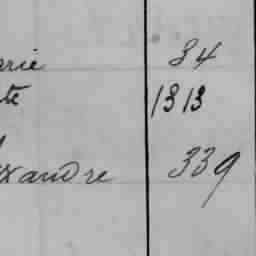 arie 34
te 1313
exandre 339